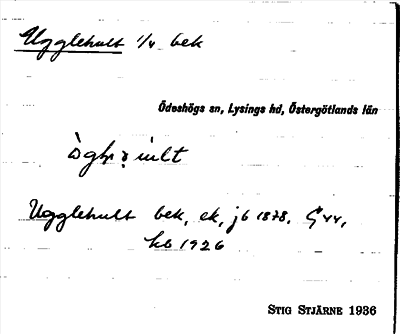 Ugglehult 1/4 bek
Ödeshögs sn, Lysings hd, Östergötlands län
Ugglehult bek, ek, jb 1878. G 44,
kb 1926
STIG STJÄRNE 1936